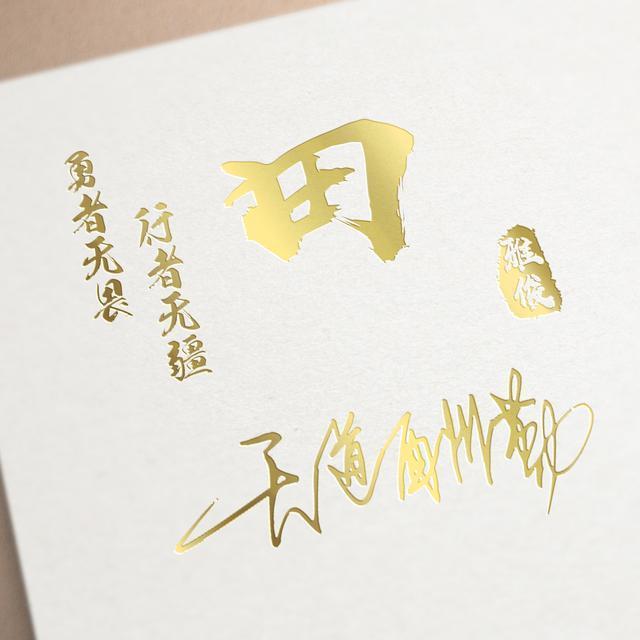 勇者无畏
行者无疆
田
天道酬勤